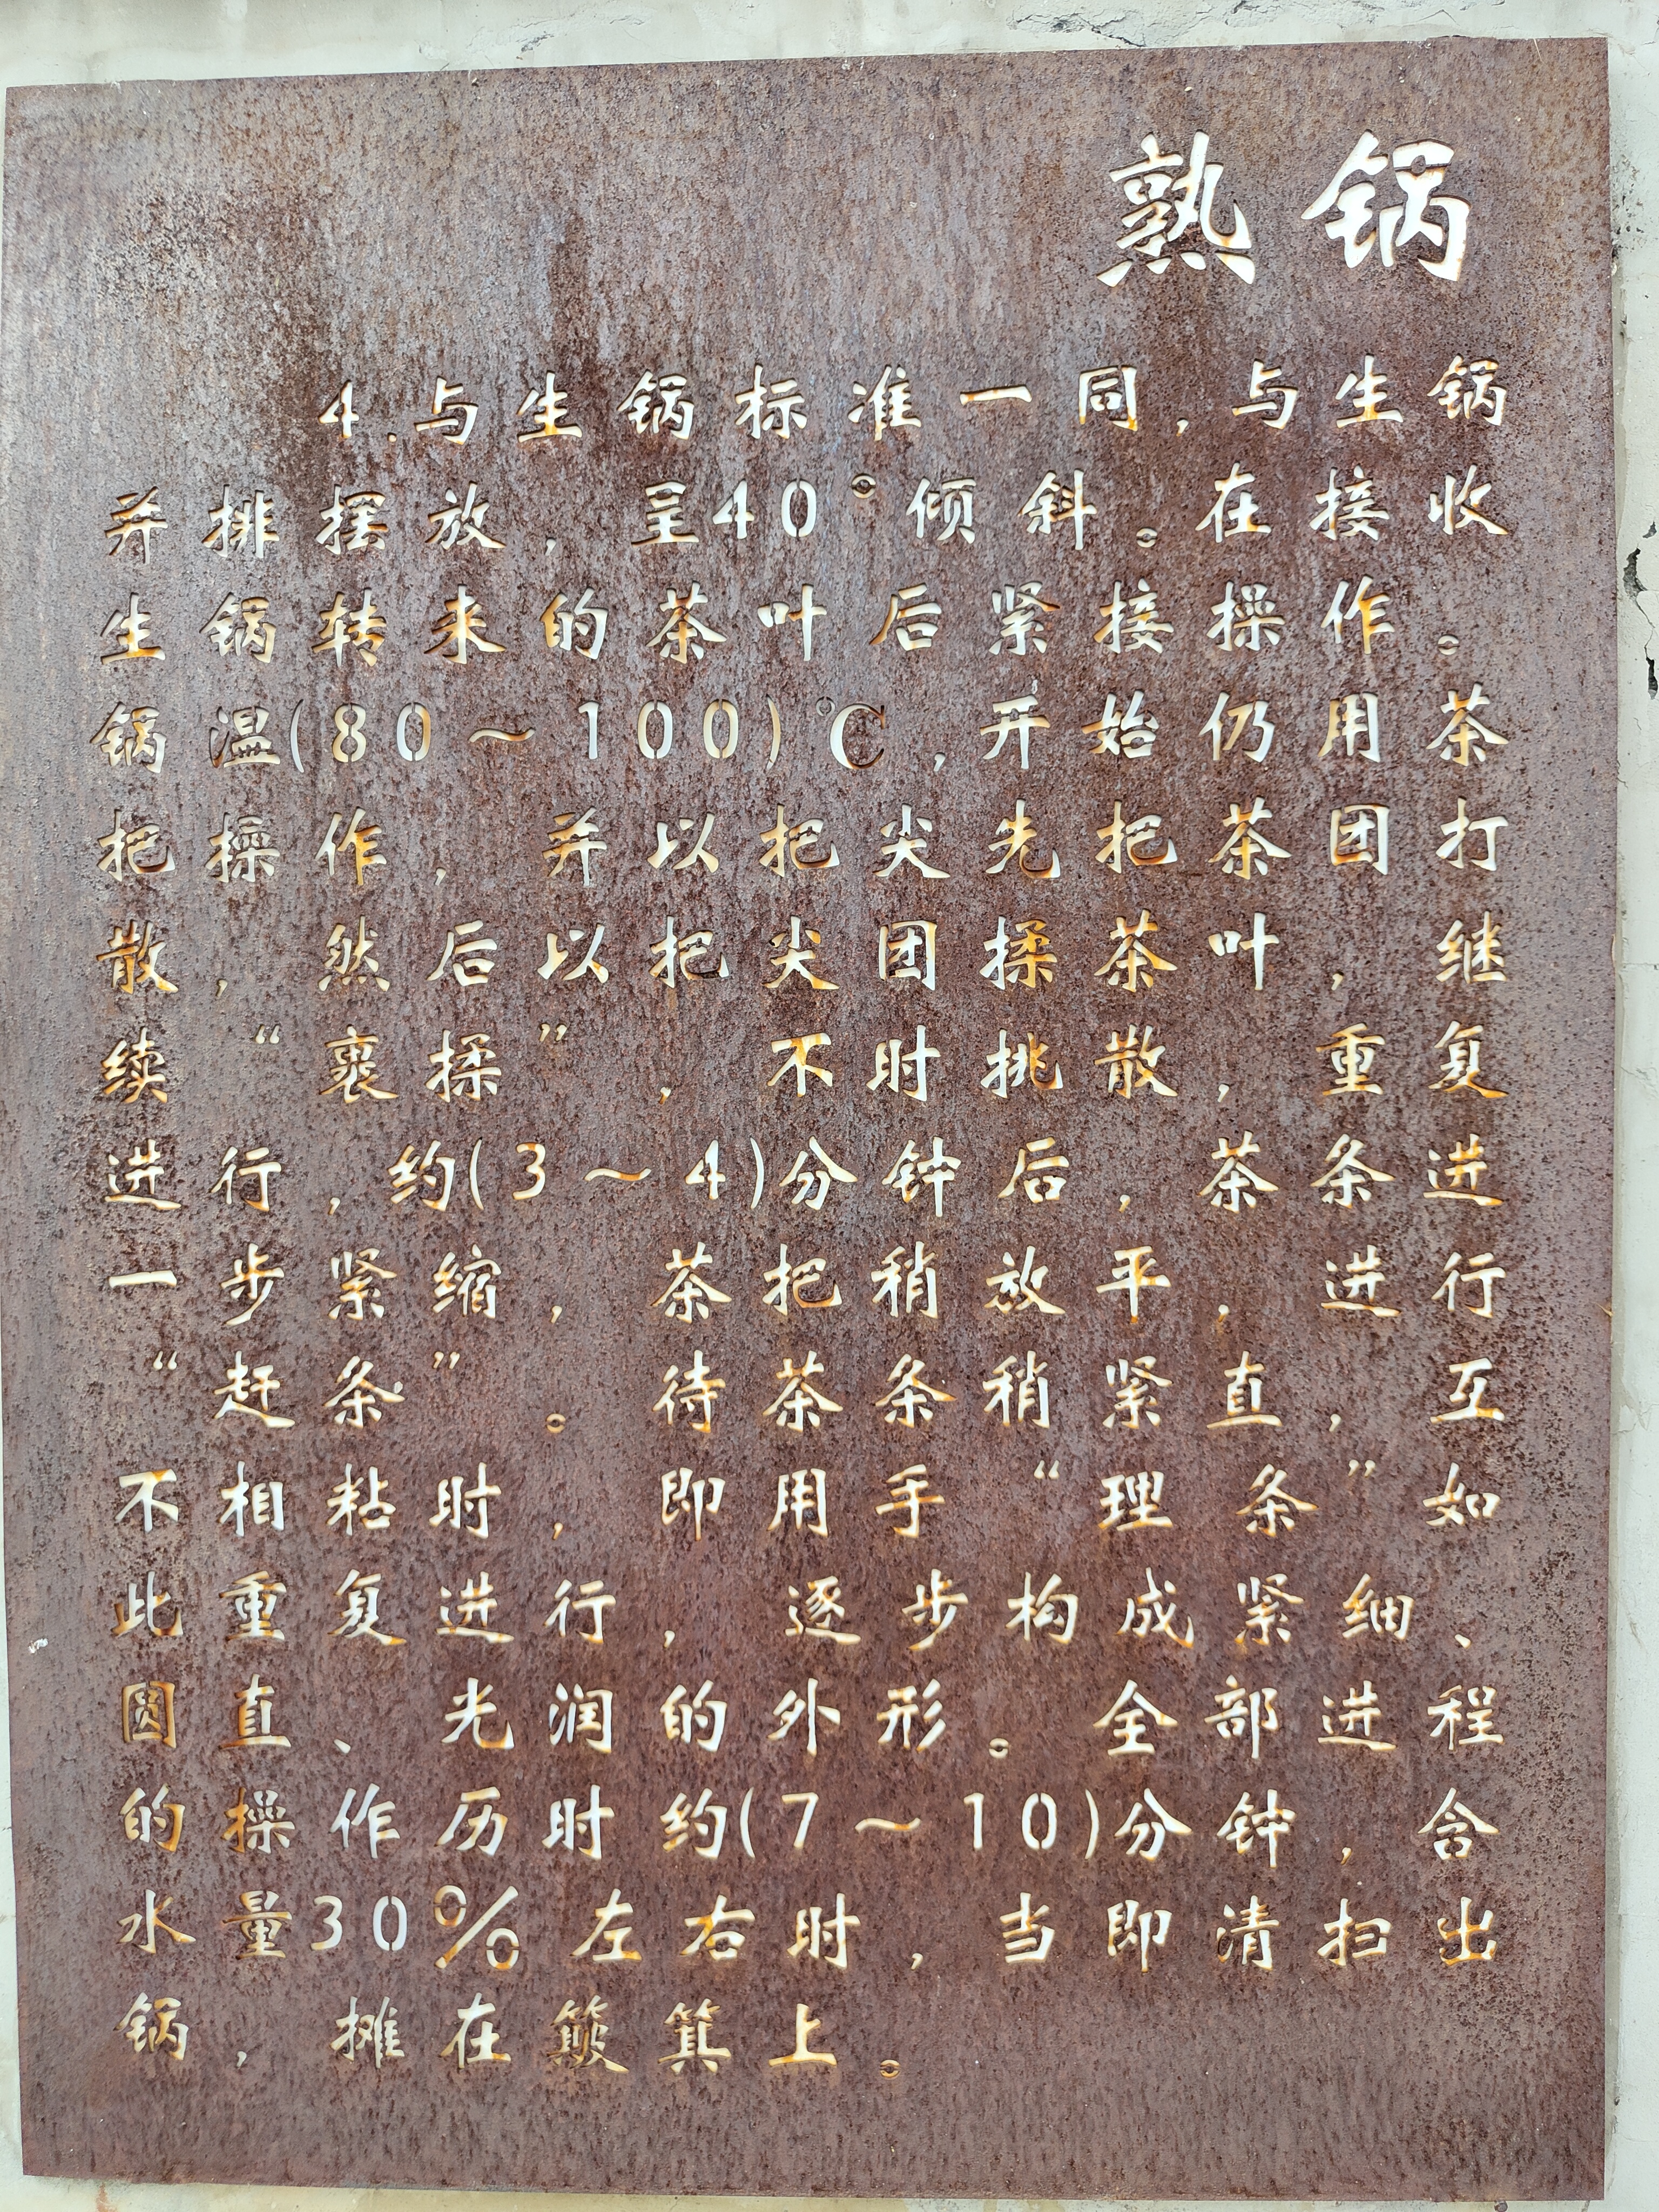 熟锅
4.与生锅标准一同,与生锅
并排摆放,呈40°倾斜。在接收
生锅转来的茶叶后紧接操作。
锅温(80～100)℃,开始仍用茶
把操作,并以把尖先把茶团打
散,然后以把尖团揉茶叶,继
续“裹揉”,不时挑散,重复
进行,约(3～4)分钟后,茶条进
一步紧缩,茶把稍放平,进行
“赶条”。待茶条稍紧直,互
不相粘时,即用手“理条”如
此重复进行,逐步构成紧细、
圆直、光润的外形。全部进程
的操作历时约(7～10)分钟,含
水量30%左右时,当即清扫出
锅,摊在簸箕上。